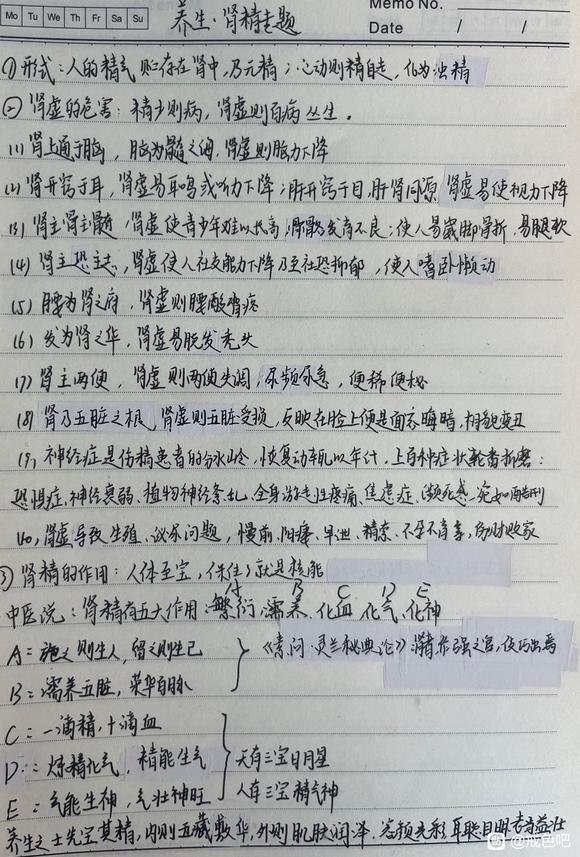 Mo Tu We Th Fr Sa Su
Memo No.
Date / /
养生·肾精主题
①形式:人的精气贮存在肾中,乃元精;心动则精自走,化为浊精
②肾虚的危害:精少则病,肾虚则百病丛生。
(1)肾上通于脑,脑为髓之海,肾虚则脑力下降
(2)肾开窍于耳,肾虚易耳鸣或听力下降;肝开窍于目,肝肾同源,肾虚易使视力下降
(3)肾主骨主髓,肾虚使青少年难以长高,发育不良;使人易崴脚骨折,易腿软
(4)肾主恐主志,肾虚使人社交能力下降乃至社恐抑郁,使人嗜卧懒动
(5)腰为肾之府,肾虚则腰酸背疼
(6)发为肾之华,肾虚易脱发秃头
(7)肾主两便,肾虚则两便失调,尿频尿急,便稀便秘
(8)肾乃五脏之根,肾虚则五脏受损,反映在脸上便是面容晦暗,相貌变丑
(9)神经症是伤精患者的分水岭,恢复动辄以年计,上百种症状轮番折磨:
恐惧症、神经衰弱、植物神经紊乱、全身游走性疼痛、焦虑症、濒死感…宛如酷刑
(10)肾虚导致生殖、泌尿问题,慢前、阳痿、早泄、精索、不孕不育等,伤财败家
③肾精的作用:人体至宝,(保住)就是核能
A B C D E
中医说:肾精有五大作用:繁衍、濡养、化血、化气、化神
A:施之则生人,留之则生己
《素问·灵兰秘典论》:肾者作强之官,伎巧出焉
B:濡养五脏,荣华百脉
C:一滴精,十滴血
D:炼精化气,精能生气
天有三宝日月星
E:气能生神,气壮神旺
人有三宝精气神
养生之士先宝其精,内则五藏敷华,外则肌肤润泽,容颜光彩,耳聪目明,老当益壮
@戒色吧